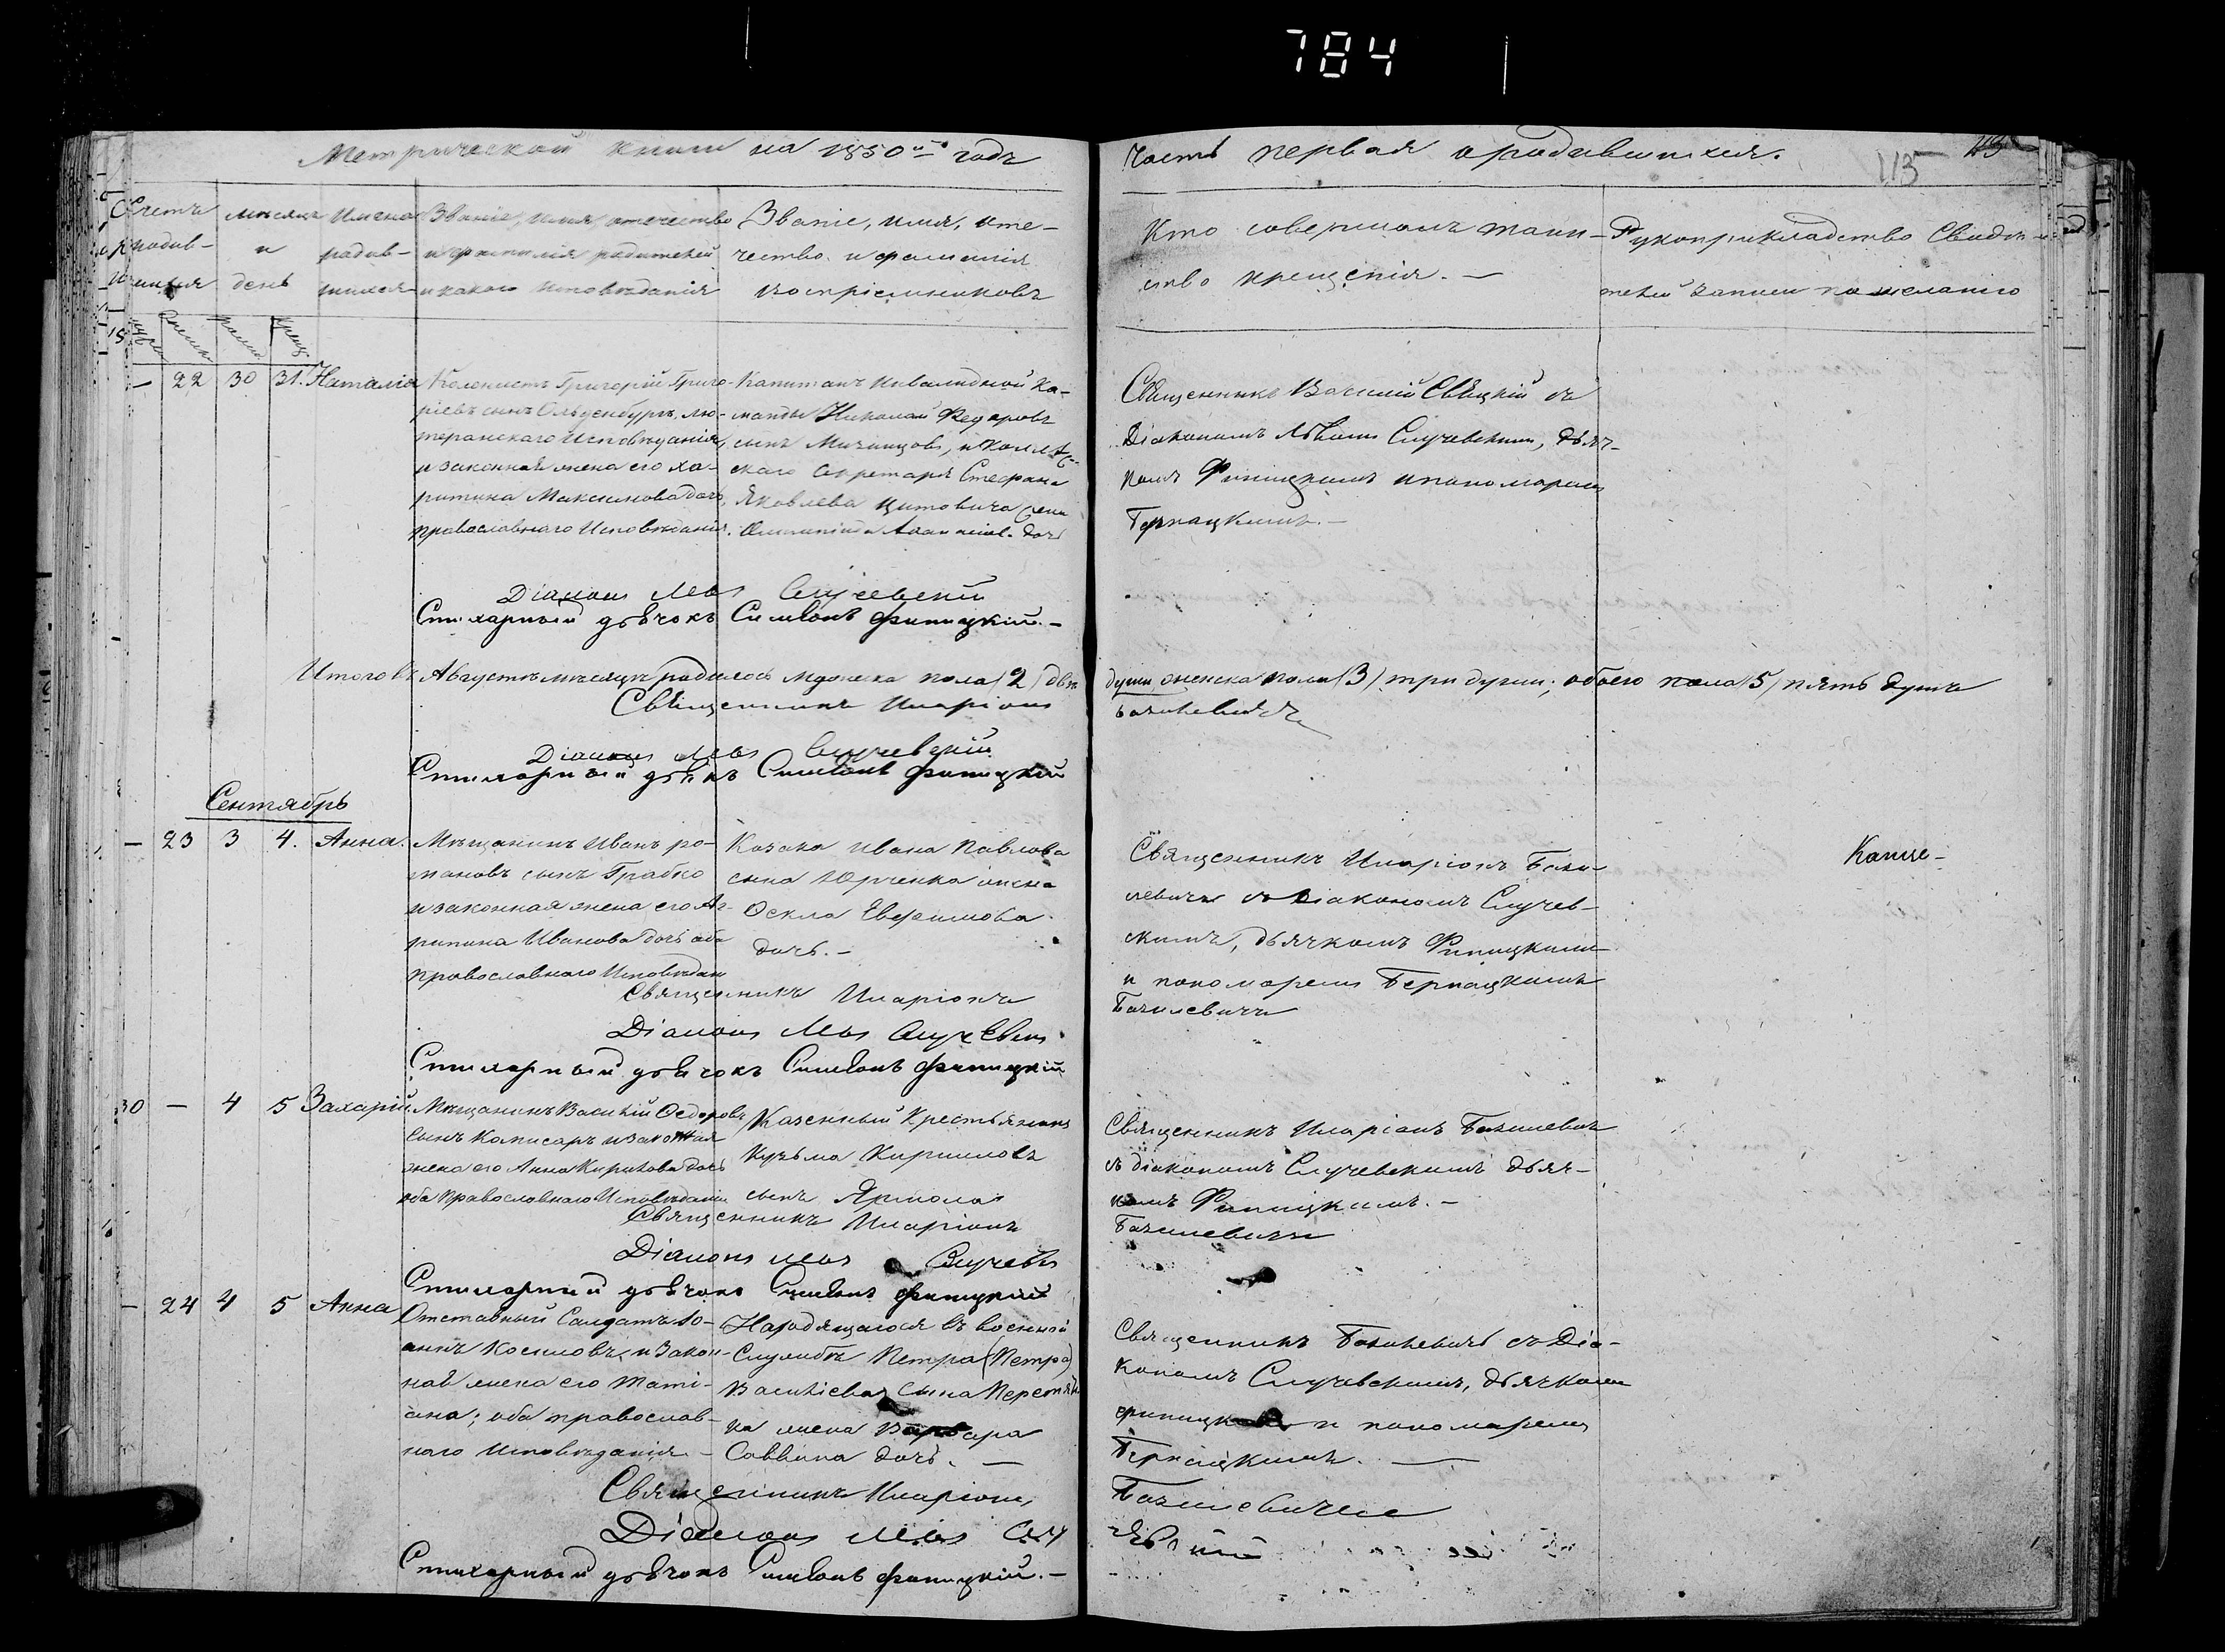 784
Метрической книги на 1850й годъ
часть первая о родившихся.
115
Счетъ родившихся
мѣсяцъ и день
Имена родившихся
Званіе, имя, отечество и фамилія родителей и какого исповѣданія
Званіе, имя, отечество и фамилія воспріемниковъ
Кто совершалъ таинство крещенія. —
Рукоприкладство Свидѣтелей записи по желанію
— 22 30 31. Наталія
Колонистъ Григорій Григо-
ріевъ сынъ Ольденбургъ, лю-
теранскаго Исповѣданія,
и законная жена его Ха-
ритина Максимова дочь,
православнаго Исповѣданія.
Капитанъ Инвалидной Ко-
манды Николай Федоровъ
сынъ Мизинцовъ, и Коллеж-
скаго Секретаря Стефана
Яковлева Цитовича жена
Олимпіада дочь
Священникъ Василій Свѣцкій съ
Діакономъ Львомъ Случевскимъ, дьяч-
комъ Фипицкимъ и пономаремъ
Бернацкимъ. —
Діаконъ Левъ Случевскій
Стихарный дьвчокъ Симеонъ Фипицкій. —
Итого въ Августѣ мѣсяцѣ родилось мужеска пола (2) двѣ
души женска пола (3) три души; обоего пола (5) пять душъ
Священникъ Иларіонъ
Базилевичъ
Діаконъ Левъ Случевскій
Стихарный дьвчокъ Симеонъ Фипицкій
Сентябрь
— 23 3 4. Анна.
Мѣщанинъ Иванъ Ро-
мановъ сынъ Грабко
и законная жена его Аг-
рипина Иванова дочь оба
православнаго Исповѣдан
Козака Ивана Павлова
сына Юрченка жена
Фекла Евфимова
дочь. —
Священникъ Иларіонъ Бази-
левичъ съ Діакономъ Случев-
скимъ, дьячкомъ Фипицкимъ
и пономаремъ Бернацкимъ
Священникъ Иларіонъ
Базилевичъ
Діаконъ Левъ Случевск
Стихарный дьвчокъ Симеонъ Фипицкій
30 — 4 5 Захарій
Мѣщанинъ Василій Федоровъ
сынъ Комисаръ и законная
жена его Анна Кирилова дочь
оба православнаго Исповѣданія
Казенный Крестьянинъ
Кузьма Кирилловъ
сынъ Ярмола
Священникъ Иларіонъ Базилевич
съ діакономъ Случевскимъ дьяч-
комъ Фипицкимъ. —
Священникъ Иларіонъ
Базилевичъ
Діаконъ Левъ Случевс
Стихарный дьвчокъ Симеонъ Фипицкій
— 24 4 5 Анна
Отставный Салдатъ Іо-
аннъ Косиловъ, и Закон-
ная жена его Таті-
ана; оба православ-
наго Исповѣданія —
Находящагося въ военной
Службѣ Петра (Петра)
Василіева сына
жена Варвара
Саввина дочь. —
Священникъ Базилевичъ съ Діа-
кономъ Случевскимъ, дьячкомъ
и пономаремъ
Бернацкимъ. —
Священникъ Иларіонъ
Базилевичъ
Діаконъ Левъ Случ
Стихарный дьвчокъ Симеонъ Фипицкій. —